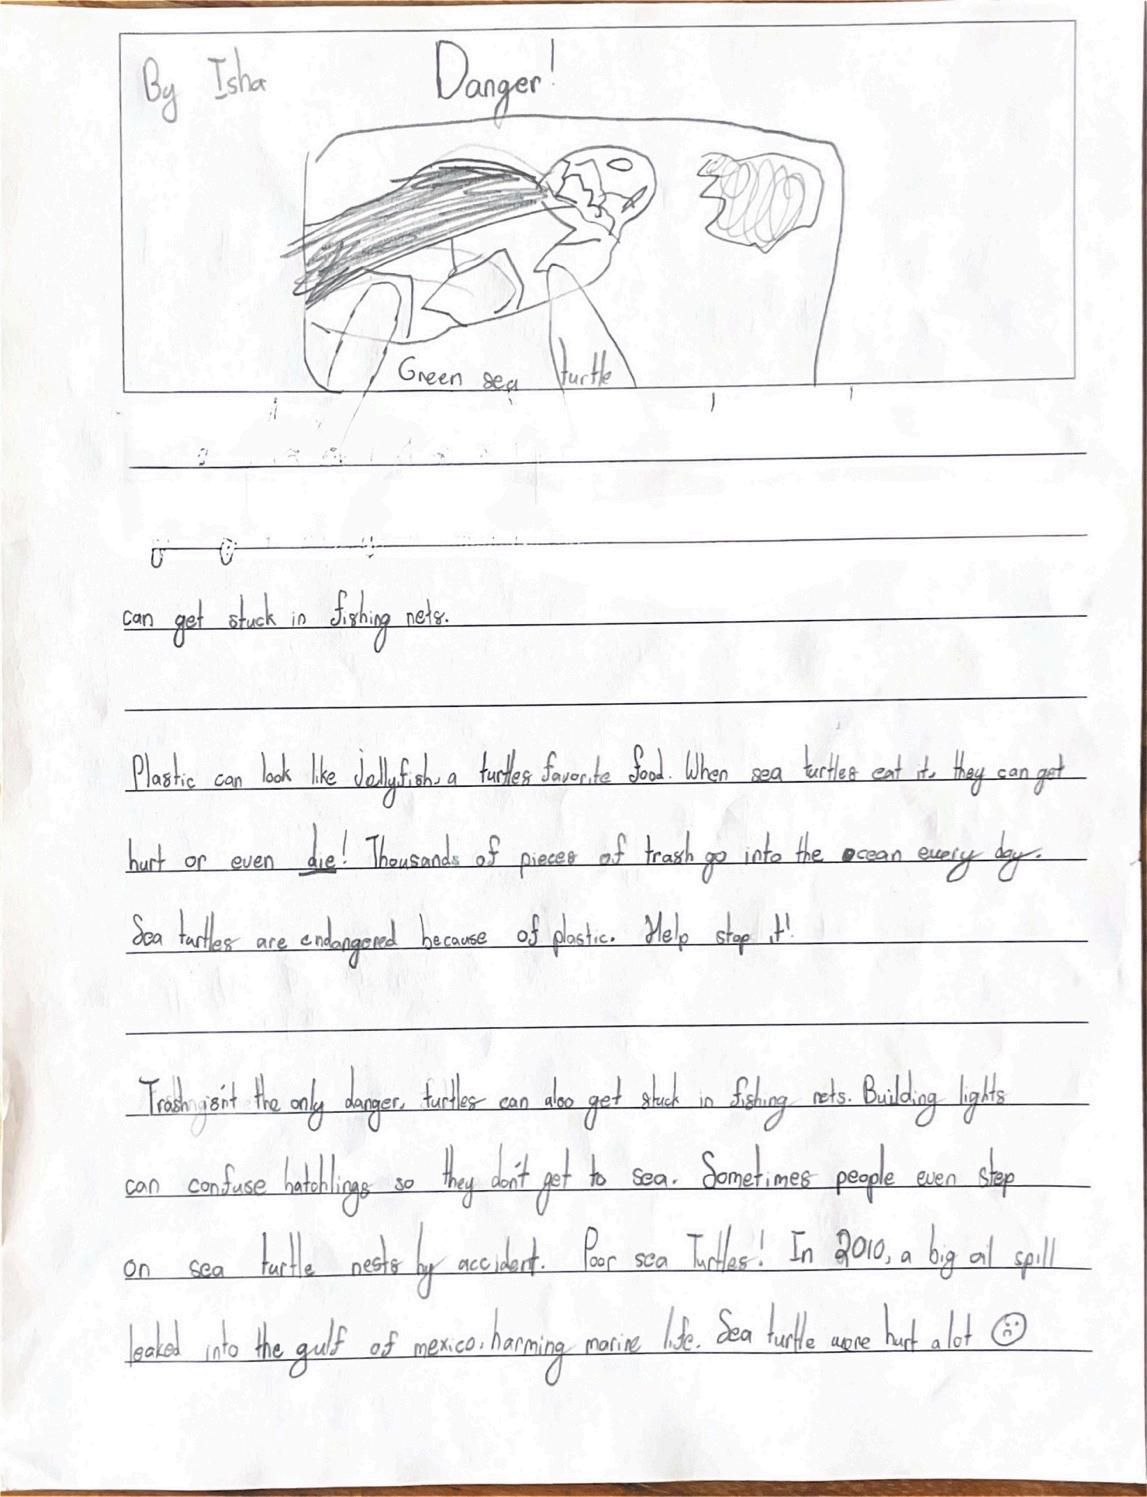 By Isha
Danger!
Green sea turtle
can get stuck in fishing nets.
Plastic can look like jellyfish, a turtles favorite food. When sea turtles eat it, they can get
hurt or even die! Thousands of pieces of trash go into the ocean every day.
Sea turtles are endangered because of plastic. Help stop it!
Trash isn't the only danger, turtles can also get stuck in fishing nets. Building lights
can confuse hatchlings so they don't get to sea. Sometimes people even step
on sea turtle nests by accident. Poor sea Turtles! In 2010, a big oil spill
leaked into the gulf of mexico, harming marine life. Sea turtle were hurt a lot ☹